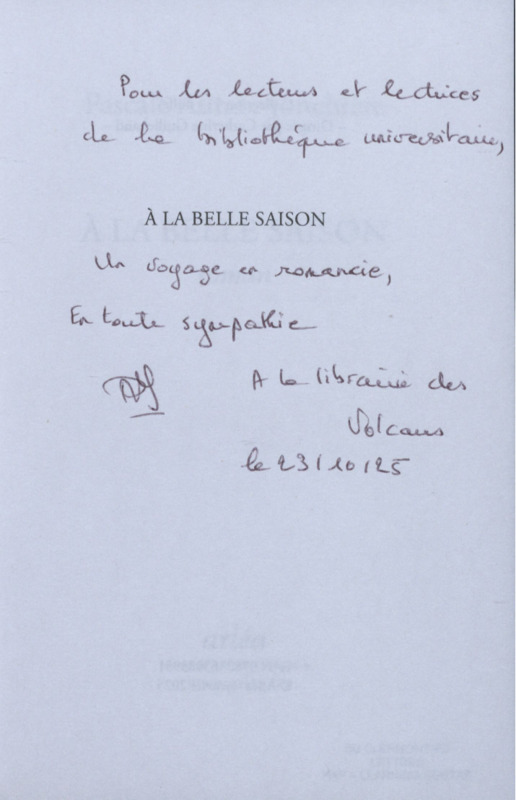 Pour les lecteurs et lectrices
de la bibliothèque universitaire,
À LA BELLE SAISON
Un voyage en romancie,
En toute sympathie
A la librairie des
Volcans
le 23/10/25